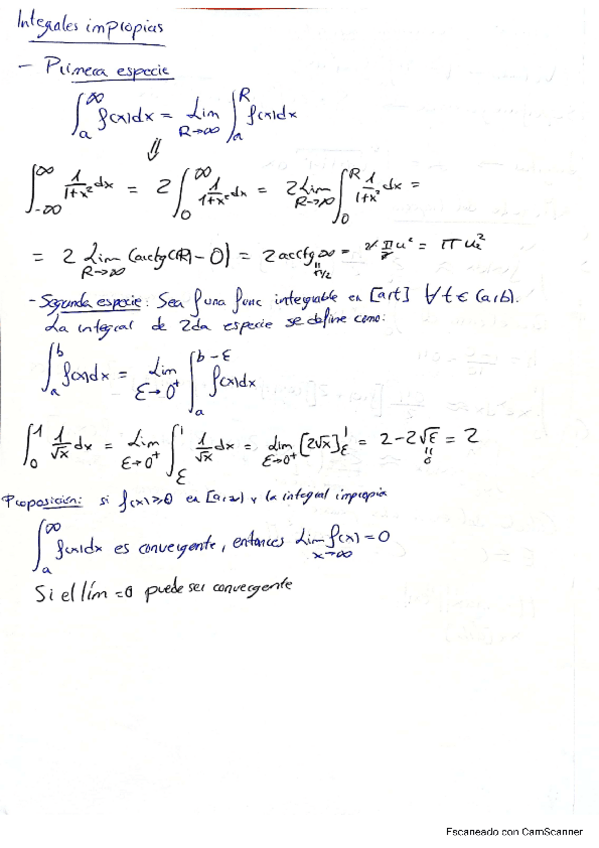 Integrales impropias
- Primera especie
∫_a^∞ f(x)dx = Lim_{R→∞} ∫_a^R f(x)dx
⇓
∫_{-∞}^∞ 1/(1+x²) dx = 2 ∫_0^∞ 1/(1+x²) dx = 2 Lim_{R→∞} ∫_0^R 1/(1+x²) dx =
= 2 Lim_{R→∞} (arctg(R) - 0) = 2 arctg ∞ = 2 π/2 u² = π u²
π/2
- Segunda especie: Sea f una func integrable en [a,t] ∀ t ∈ (a,b).
La integral de 2da especie se define como:
∫_a^b f(x)dx = Lim_{ε→0⁺} ∫_a^{b-ε} f(x)dx
∫_0^1 1/√x dx = Lim_{ε→0⁺} ∫_ε^1 1/√x dx = Lim_{ε→0⁺} [2√x]_ε^1 = 2 - 2√ε = 2
0
Proposición: si f(x) ≥ 0 en [a,∞) y la integral impropia
∫_a^∞ f(x)dx es convergente, entonces Lim_{x→∞} f(x) = 0
Si el lím = 0 puede ser convergente
Escaneado con CamScanner